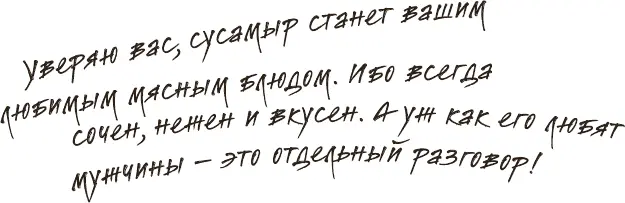 уверяю вас, сусамыр станет вашим
любимым мясным блюдом. Ибо всегда
сочен, нежен и вкусен. А уж как его любят
мужчины – это отдельный разговор!